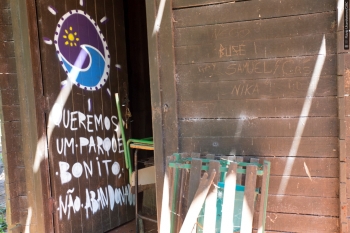 QUEREMOS
UM·PARQUE
BONITO.
·NÃO·ABANDONADO
BUSE
NIKA